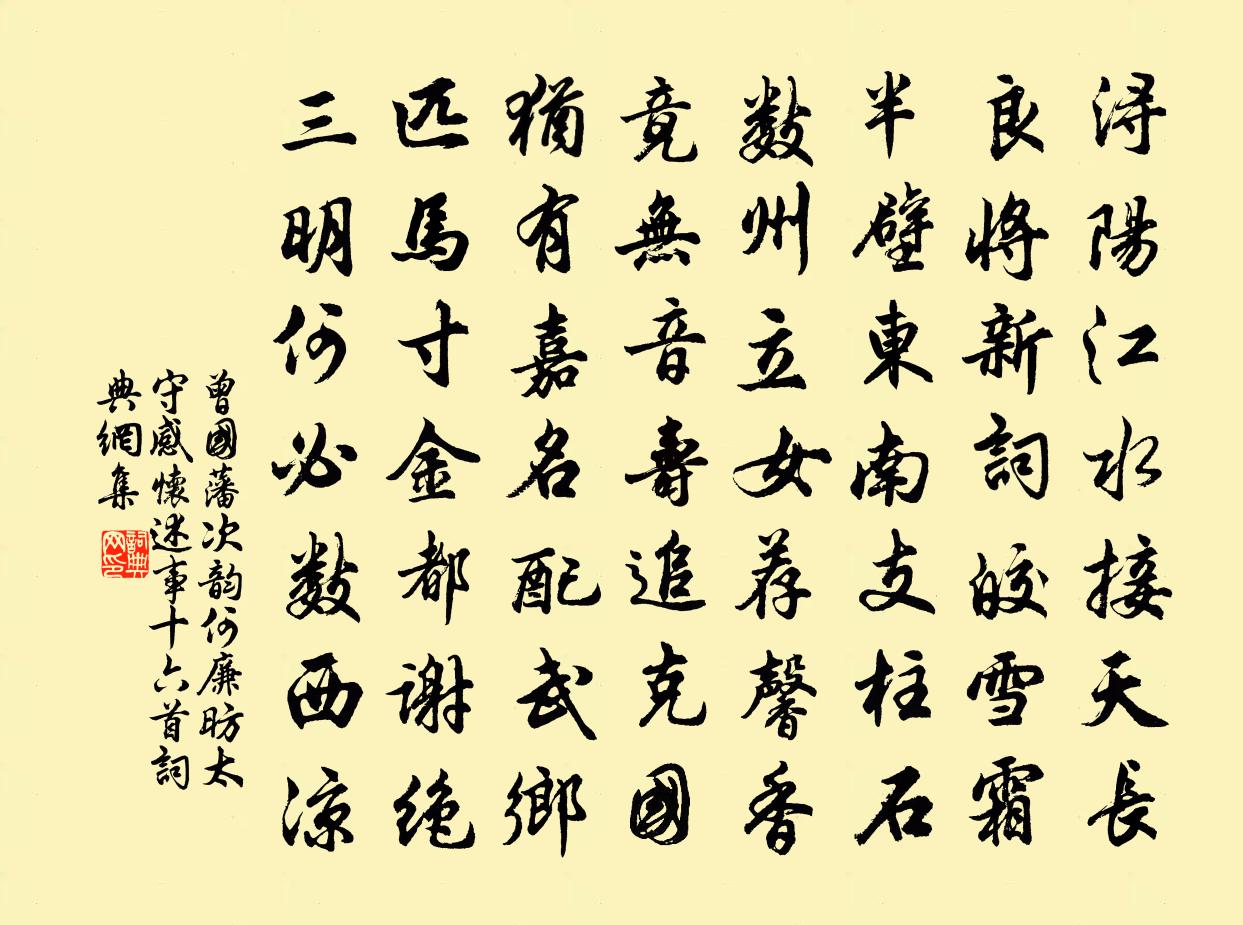 浔陽江水接天長
良將新詞皎雪霜
半壁東南支柱石
數州立女荐馨香
竟無音壽追克國
猶有嘉名配武鄉
匹馬寸金都谢绝
三明何必數西凉
曾國藩次韵何廉昉太
守感懷述事十六首詞
典網集
詞典网印